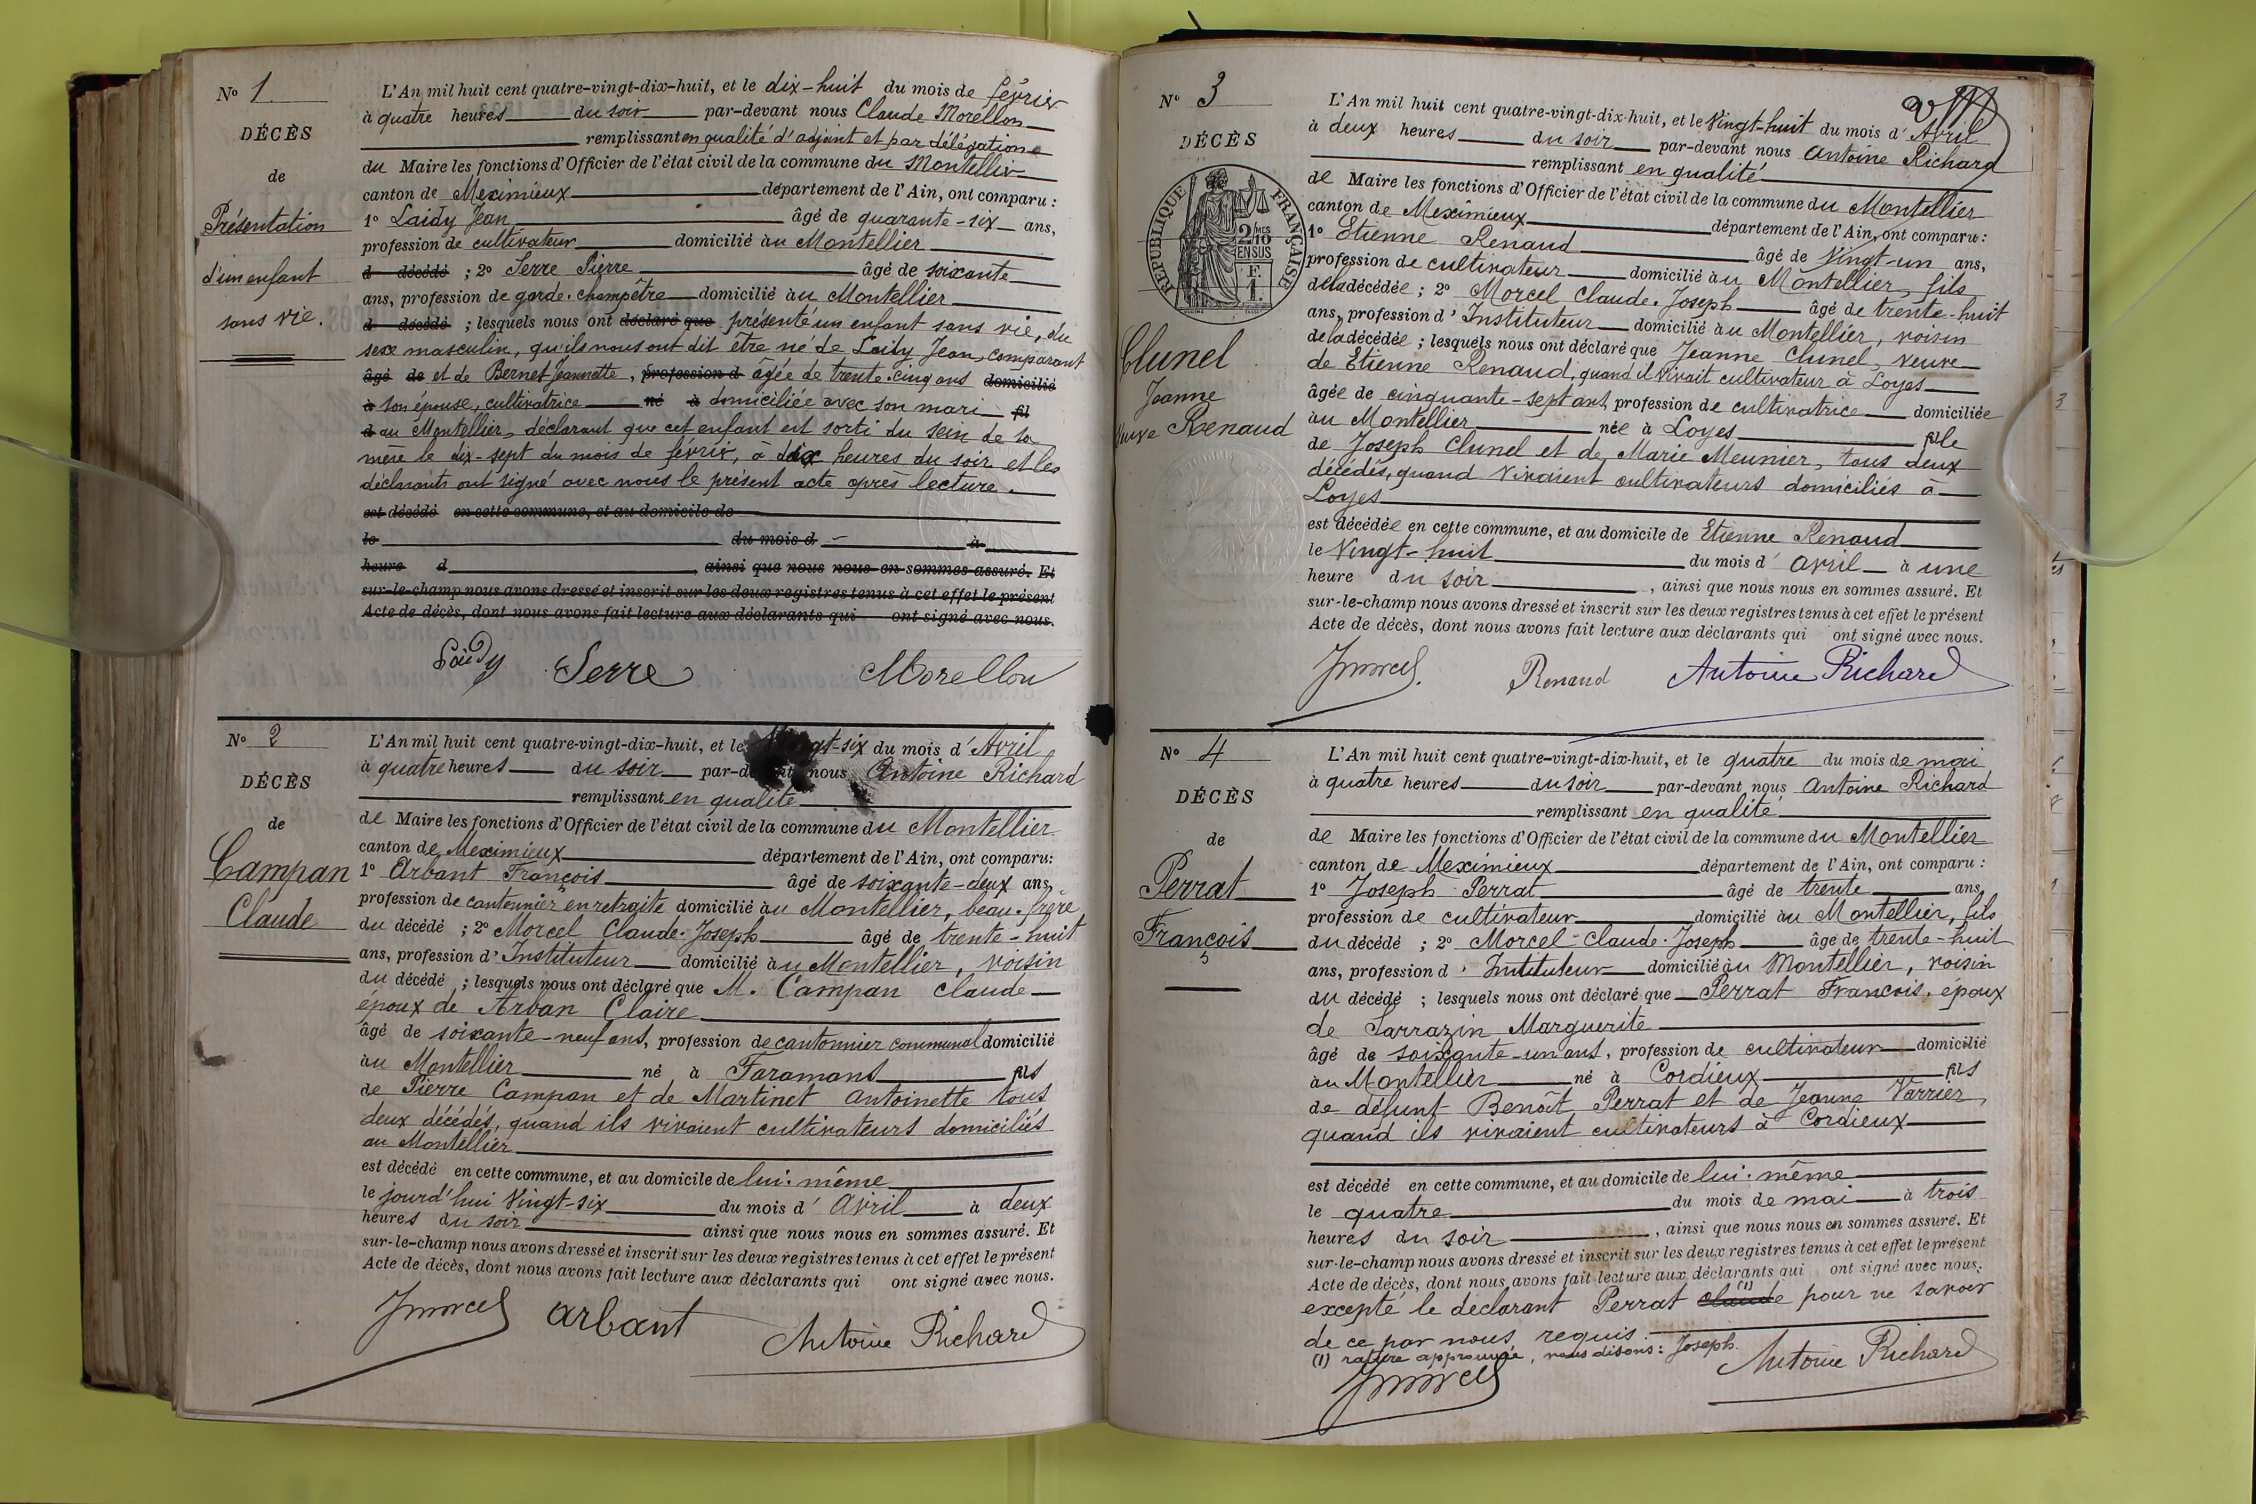 N° 1
DÉCÈS
de
Présentation
d'un enfant
sans vie.
L'An mil huit cent quatre-vingt-dix-huit, et le dix-huit du mois de février
à quatre heures du soir par-devant nous Claude Morellon
remplissant en qualité d'adjoint et par délégation
du Maire les fonctions d'Officier de l'état civil de la commune du Montellier
canton de Meximieux département de l'Ain, ont comparu :
1° Laidy Jean âgé de quarante-six ans,
profession de cultivateur domicilié au Montellier
d décédé ; 2° Serre Pierre âgé de soixante
ans, profession de garde-champêtre domicilié au Montellier
d décédé ; lesquels nous ont déclaré que présenté un enfant sans vie, du
sexe masculin, qu'ils nous ont dit être né de Laidy Jean, comparant
âgé de et de Bernet Jeannette, profession d âgée de trente-cinq ans domicilié
à son épouse, cultivatrice né à domiciliée avec son mari fil
d au Montellier, déclarant que cet enfant est sorti du sein de sa
mère le dix-sept du mois de février, à dix heures du soir et les
déclarants ont signé avec nous le présent acte après lecture.
est décédé en cette commune, et au domicile de
le du mois d à
heure d ainsi que nous nous en sommes assuré. Et
sur-le-champ nous avons dressé et inscrit sur les deux registres tenus à cet effet le présent
Acte de décès, dont nous avons fait lecture aux déclarants qui ont signé avec nous.
Laidy Serre Morellon
N° 2
DÉCÈS
de
Campan
Claude
L'An mil huit cent quatre-vingt-dix-huit, et le Vingt-six du mois d'Avril
à quatre heures du soir par-devant nous Antoine Richard
remplissant en qualité
de Maire les fonctions d'Officier de l'état civil de la commune du Montellier
canton de Meximieux département de l'Ain, ont comparu:
1° Arbant François âgé de soixante-deux ans,
profession de cantonnier en retraite domicilié au Montellier, beau-frère
du décédé ; 2° Morcel Claude-Joseph âgé de trente-huit
ans, profession d'Instituteur domicilié au Montellier, voisin
du décédé ; lesquels nous ont déclaré que M. Campan Claude
époux de Arban Claire
âgé de soixante-neuf ans, profession de cantonnier communal domicilié
au Montellier né à Faramans fils
de Pierre Campan et de Martinet Antoinette tous
deux décédés, quand ils vivaient cultivateurs domiciliés
au Montellier
est décédé en cette commune, et au domicile de lui-même
le jourd'hui Vingt-six du mois d'Avril à deux
heures du soir ainsi que nous nous en sommes assuré. Et
sur-le-champ nous avons dressé et inscrit sur les deux registres tenus à cet effet le présent
Acte de décès, dont nous avons fait lecture aux déclarants qui ont signé avec nous.
Jmorcel Arbant Antoine Richard
N° 3
DÉCÈS
RÉPUBLIQUE FRANÇAISE
2/10 MES
EN SUS
F.
1.
Clunel
Jeanne
Veuve Renaud
L'An mil huit cent quatre-vingt-dix-huit, et le Vingt-huit du mois d'Avril
à deux heures du soir par-devant nous Antoine Richard
remplissant en qualité
de Maire les fonctions d'Officier de l'état civil de la commune du Montellier
canton de Meximieux département de l'Ain, ont comparu :
1° Etienne Renaud âgé de Vingt-un ans,
profession de cultivateur domicilié au Montellier, fils
de la décédée ; 2° Morcel Claude-Joseph âgé de trente-huit
ans, profession d'Instituteur domicilié au Montellier, voisin
de la décédée ; lesquels nous ont déclaré que Jeanne Clunel, veuve
de Etienne Renaud, quand il vivait cultivateur à Loyes
âgée de cinquante-sept ans, profession de cultivatrice domiciliée
au Montellier née à Loyes fille
de Joseph Clunel et de Marie Meunier, tous deux
décédés, quand vivaient cultivateurs domiciliés à
Loyes
est décédée en cette commune, et au domicile de Etienne Renaud
le Vingt-huit du mois d'avril à une
heure du soir, ainsi que nous nous en sommes assuré. Et
sur-le-champ nous avons dressé et inscrit sur les deux registres tenus à cet effet le présent
Acte de décès, dont nous avons fait lecture aux déclarants qui ont signé avec nous.
Jmorcel. Renaud Antoine Richard
N° 4
DÉCÈS
de
Perrat
François
L'An mil huit cent quatre-vingt-dix-huit, et le quatre du mois de mai
à quatre heures du soir par-devant nous Antoine Richard
remplissant en qualité
de Maire les fonctions d'Officier de l'état civil de la commune du Montellier
canton de Meximieux département de l'Ain, ont comparu :
1° Joseph Perrat âgé de trente ans,
profession de cultivateur domicilié au Montellier, fils
du décédé ; 2° Morcel-Claude-Joseph âgé de trente-huit
ans, profession d'Intituteur domicilié au Montellier, voisin
du décédé ; lesquels nous ont déclaré que Perrat François, époux
de Sarrazin Marguerite
âgé de soixante-un ans, profession de cultivateur domicilié
au Montellier né à Cordieux fils
de défunt Benoît Perrat et de Jeanne Varrier,
quand ils vivaient cultivateurs à Cordieux
est décédé en cette commune, et au domicile de lui-même
le quatre du mois de mai à trois
heures du soir, ainsi que nous nous en sommes assuré. Et
sur-le-champ nous avons dressé et inscrit sur les deux registres tenus à cet effet le présent
Acte de décès, dont nous avons fait lecture aux déclarants qui ont signé avec nous.
excepté le déclarant Perrat Claude (1) pour ne savoir
de ce par nous requis.
(1) rature approuvée, nous disons : Joseph.
Jmorcel Antoine Richard